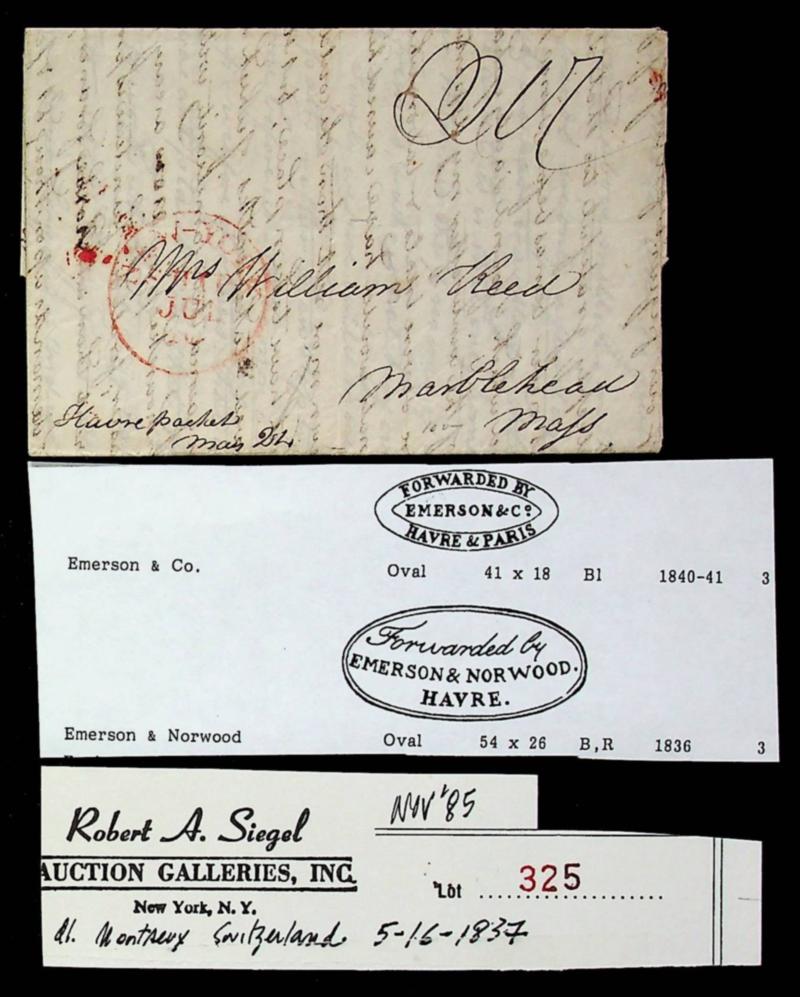 Mrs William Reed
JUL
Marblehead
Mass
Havre packet
FORWARDED BY
EMERSON & Cº
HAVRE & PARIS
Emerson & Co. Oval 41 x 18 Bl 1840-41 3
Forwarded by
EMERSON & NORWOOD.
HAVRE.
Emerson & Norwood Oval 54 x 26 B,R 1836 3
Robert A. Siegel
AUCTION GALLERIES, INC.
New York, N. Y.
Nov '85
Lot 325
Montreux Switzerland 5-16-1837